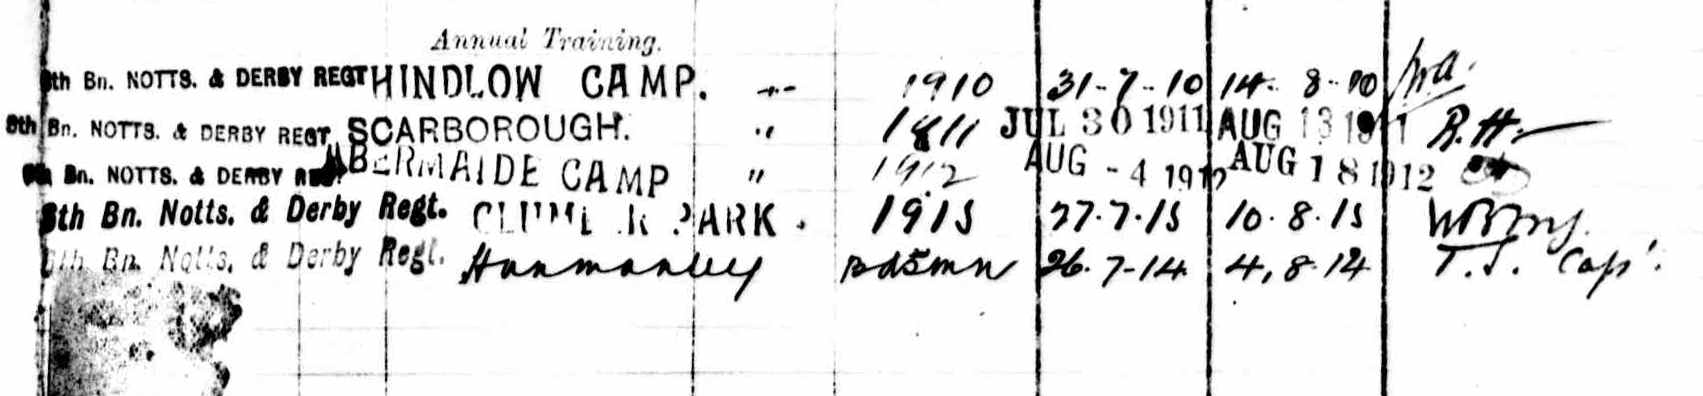 Annual Training.
8th Bn. NOTTS. & DERBY REGT HINDLOW CAMP. " 1910 31-7-10 14-8-10
8th Bn. NOTTS. & DERBY REGT. SCARBOROUGH. " 1911 JUL 30 1911 AUG 13 1911 R.H.
8th Bn. NOTTS. & DERBY REGT. ABERMAIDE CAMP " 1912 AUG -4 1912 AUG 18 1912
8th Bn. Notts. & Derby Regt. CLUMBER PARK. 1913 27.7.13 10.8.13
8th Bn. Notts. & Derby Regt. Hunmanby 26.7-14 4.8.14 T.J. Capt.